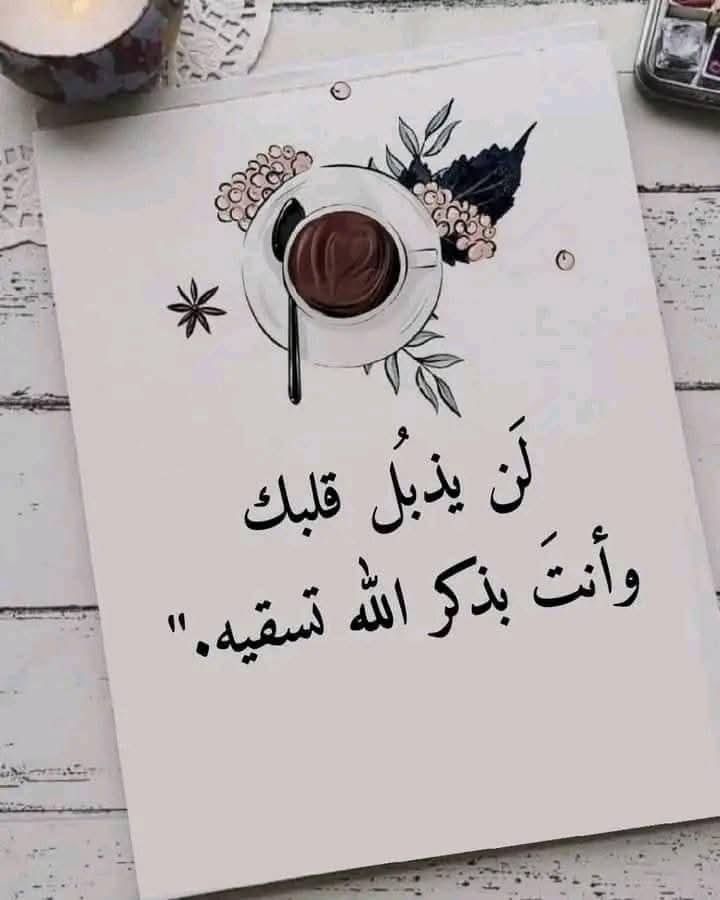 لَن يذبُل قلبك
وأنتَ بذكر الله تسقيه."